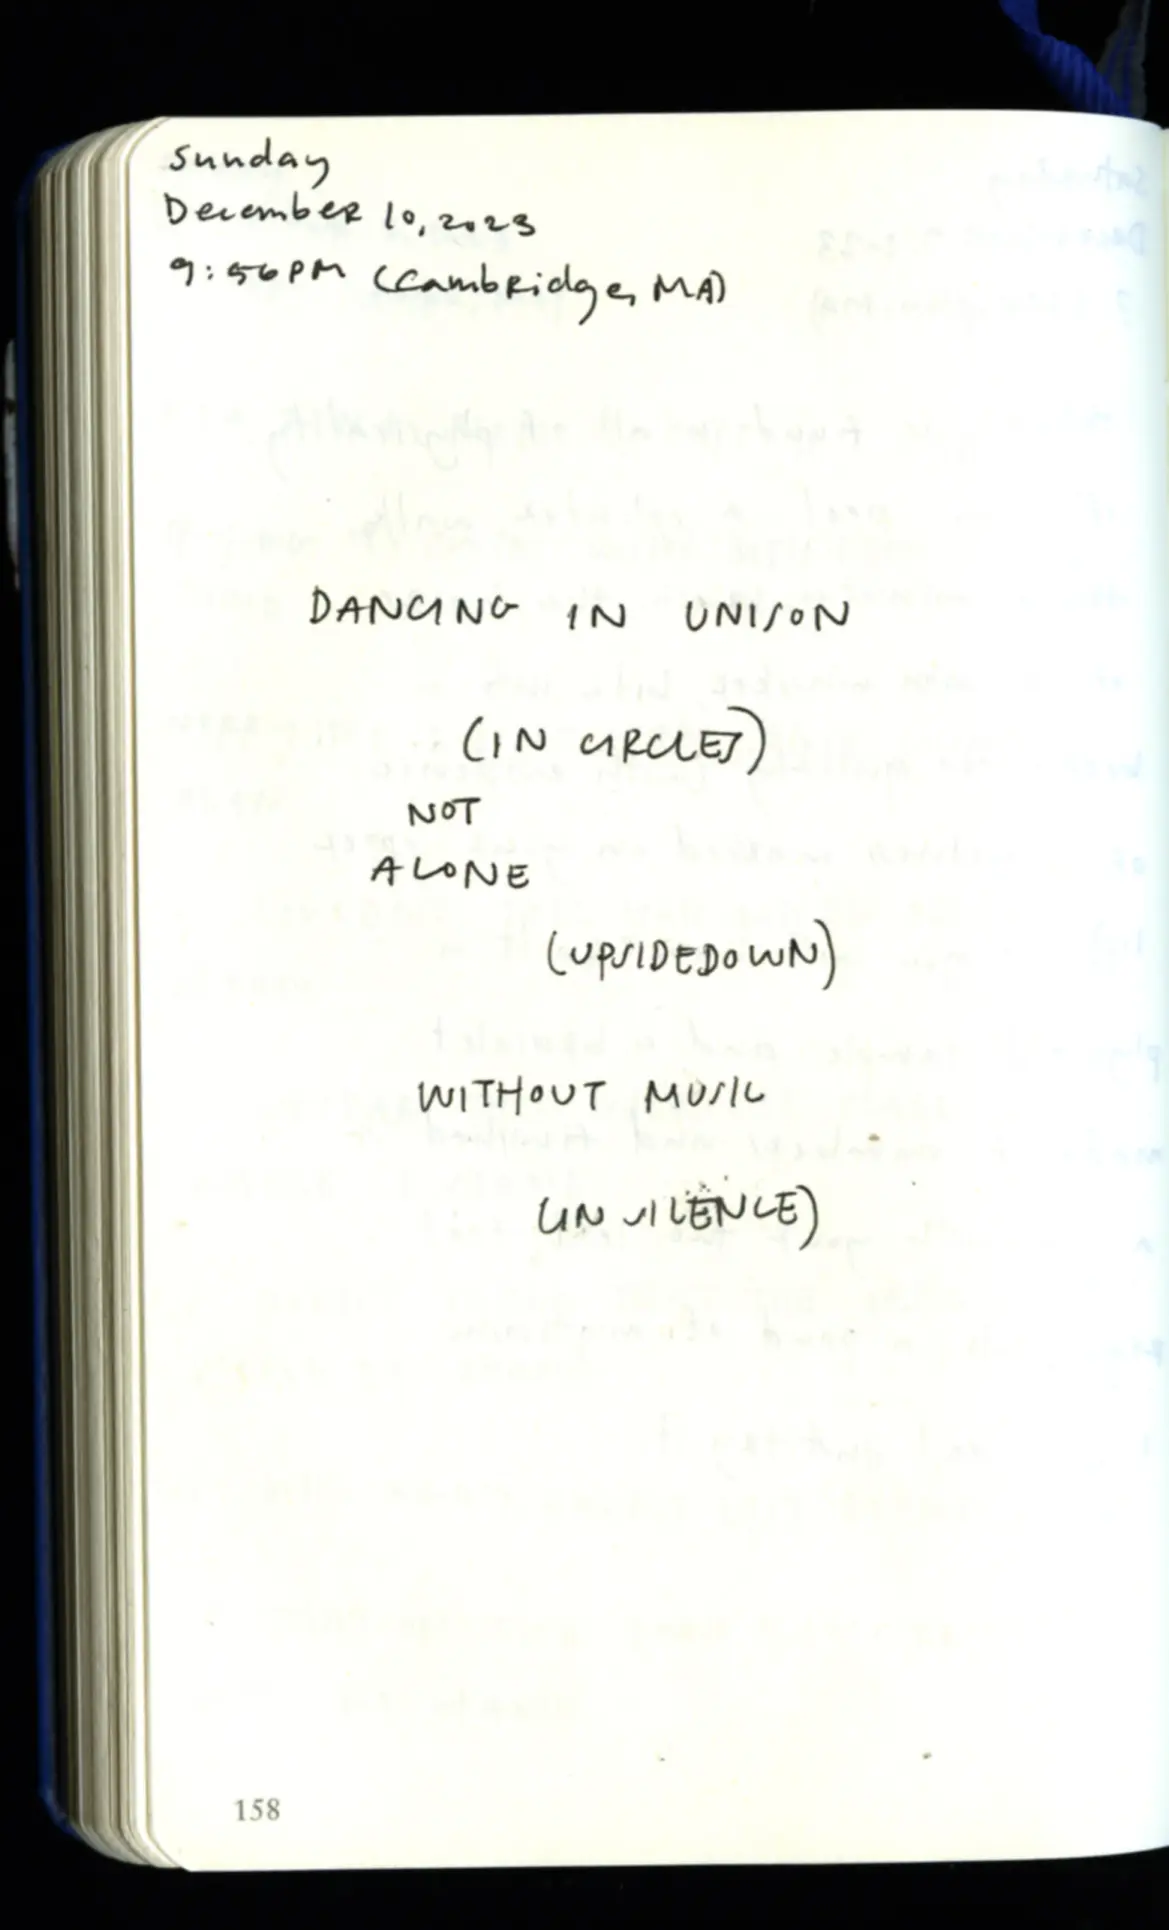 Sunday
December 10, 2023
9:56 PM (Cambridge, MA)
DANCING IN UNISON
(IN CIRCLES)
NOT
ALONE
(UPSIDEDOWN)
WITHOUT MUSIC
(IN SILENCE)
158